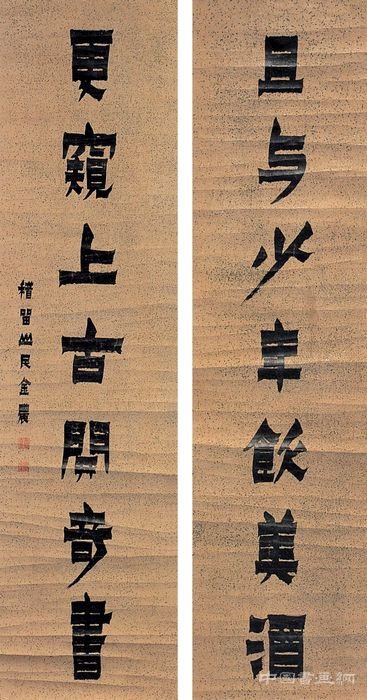 且与少年飲美酒
更窺上古開奇書
稽留山民金農
中国書画網